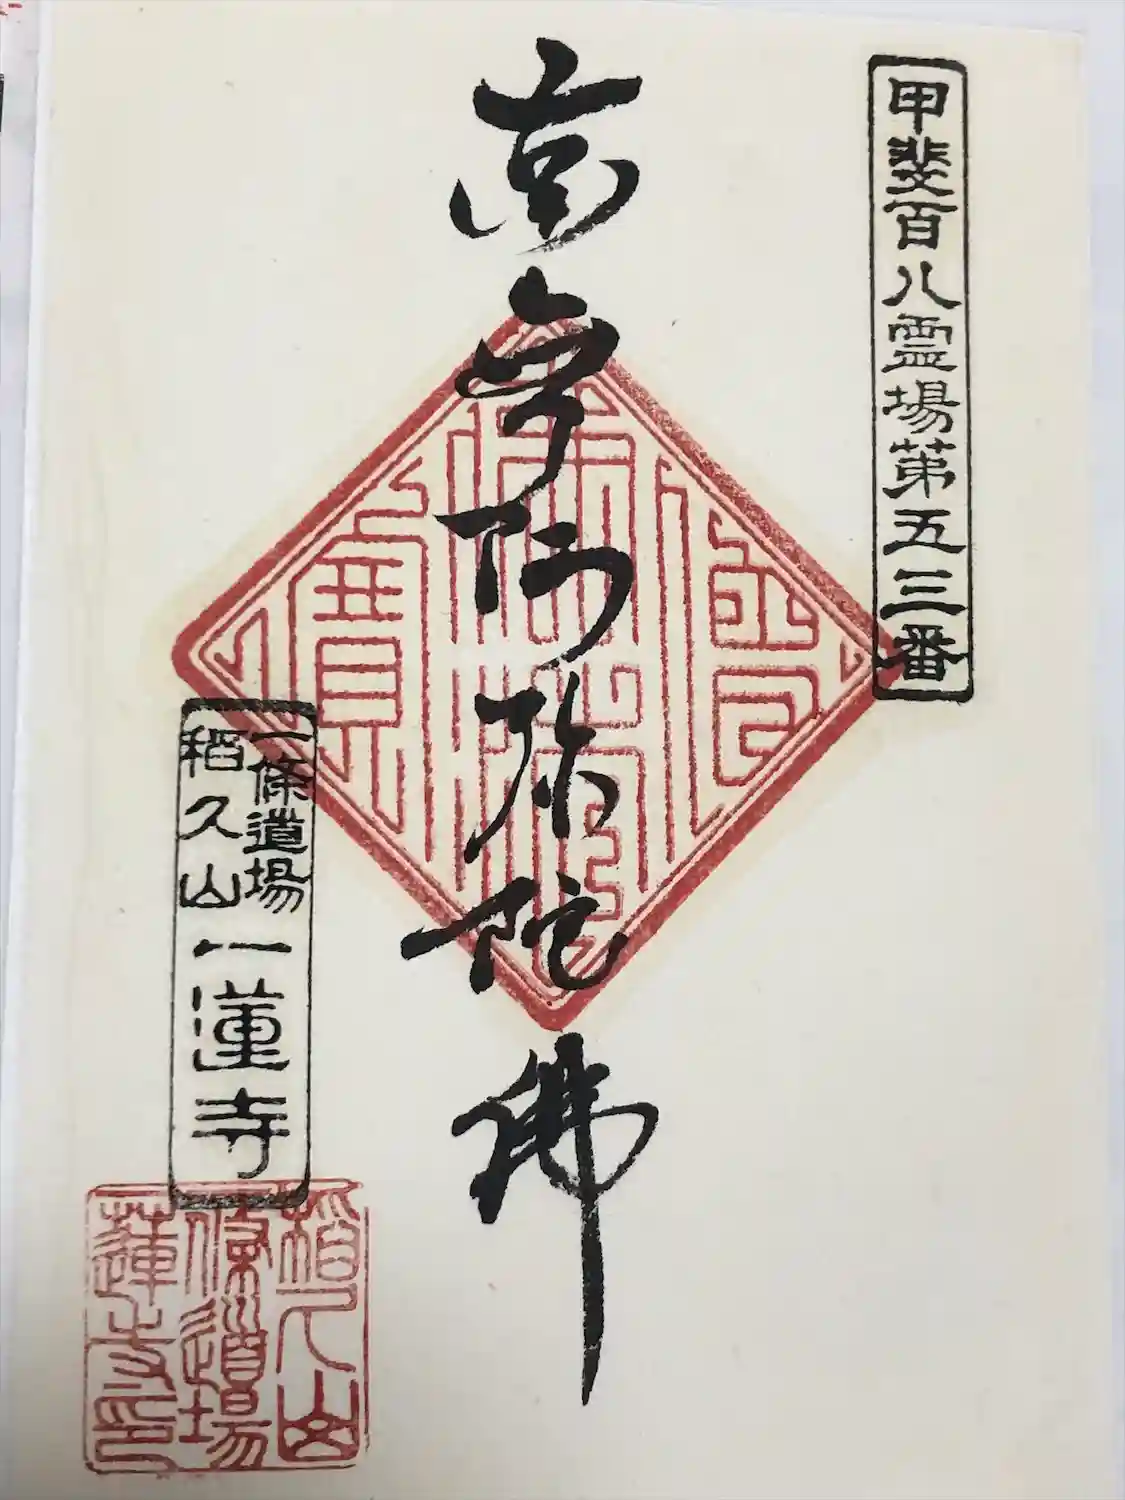 甲斐百八霊場第五三番
南無阿弥陀佛
一條道場
稻久山
一蓮寺
稻久山
一條道場
一蓮寺印